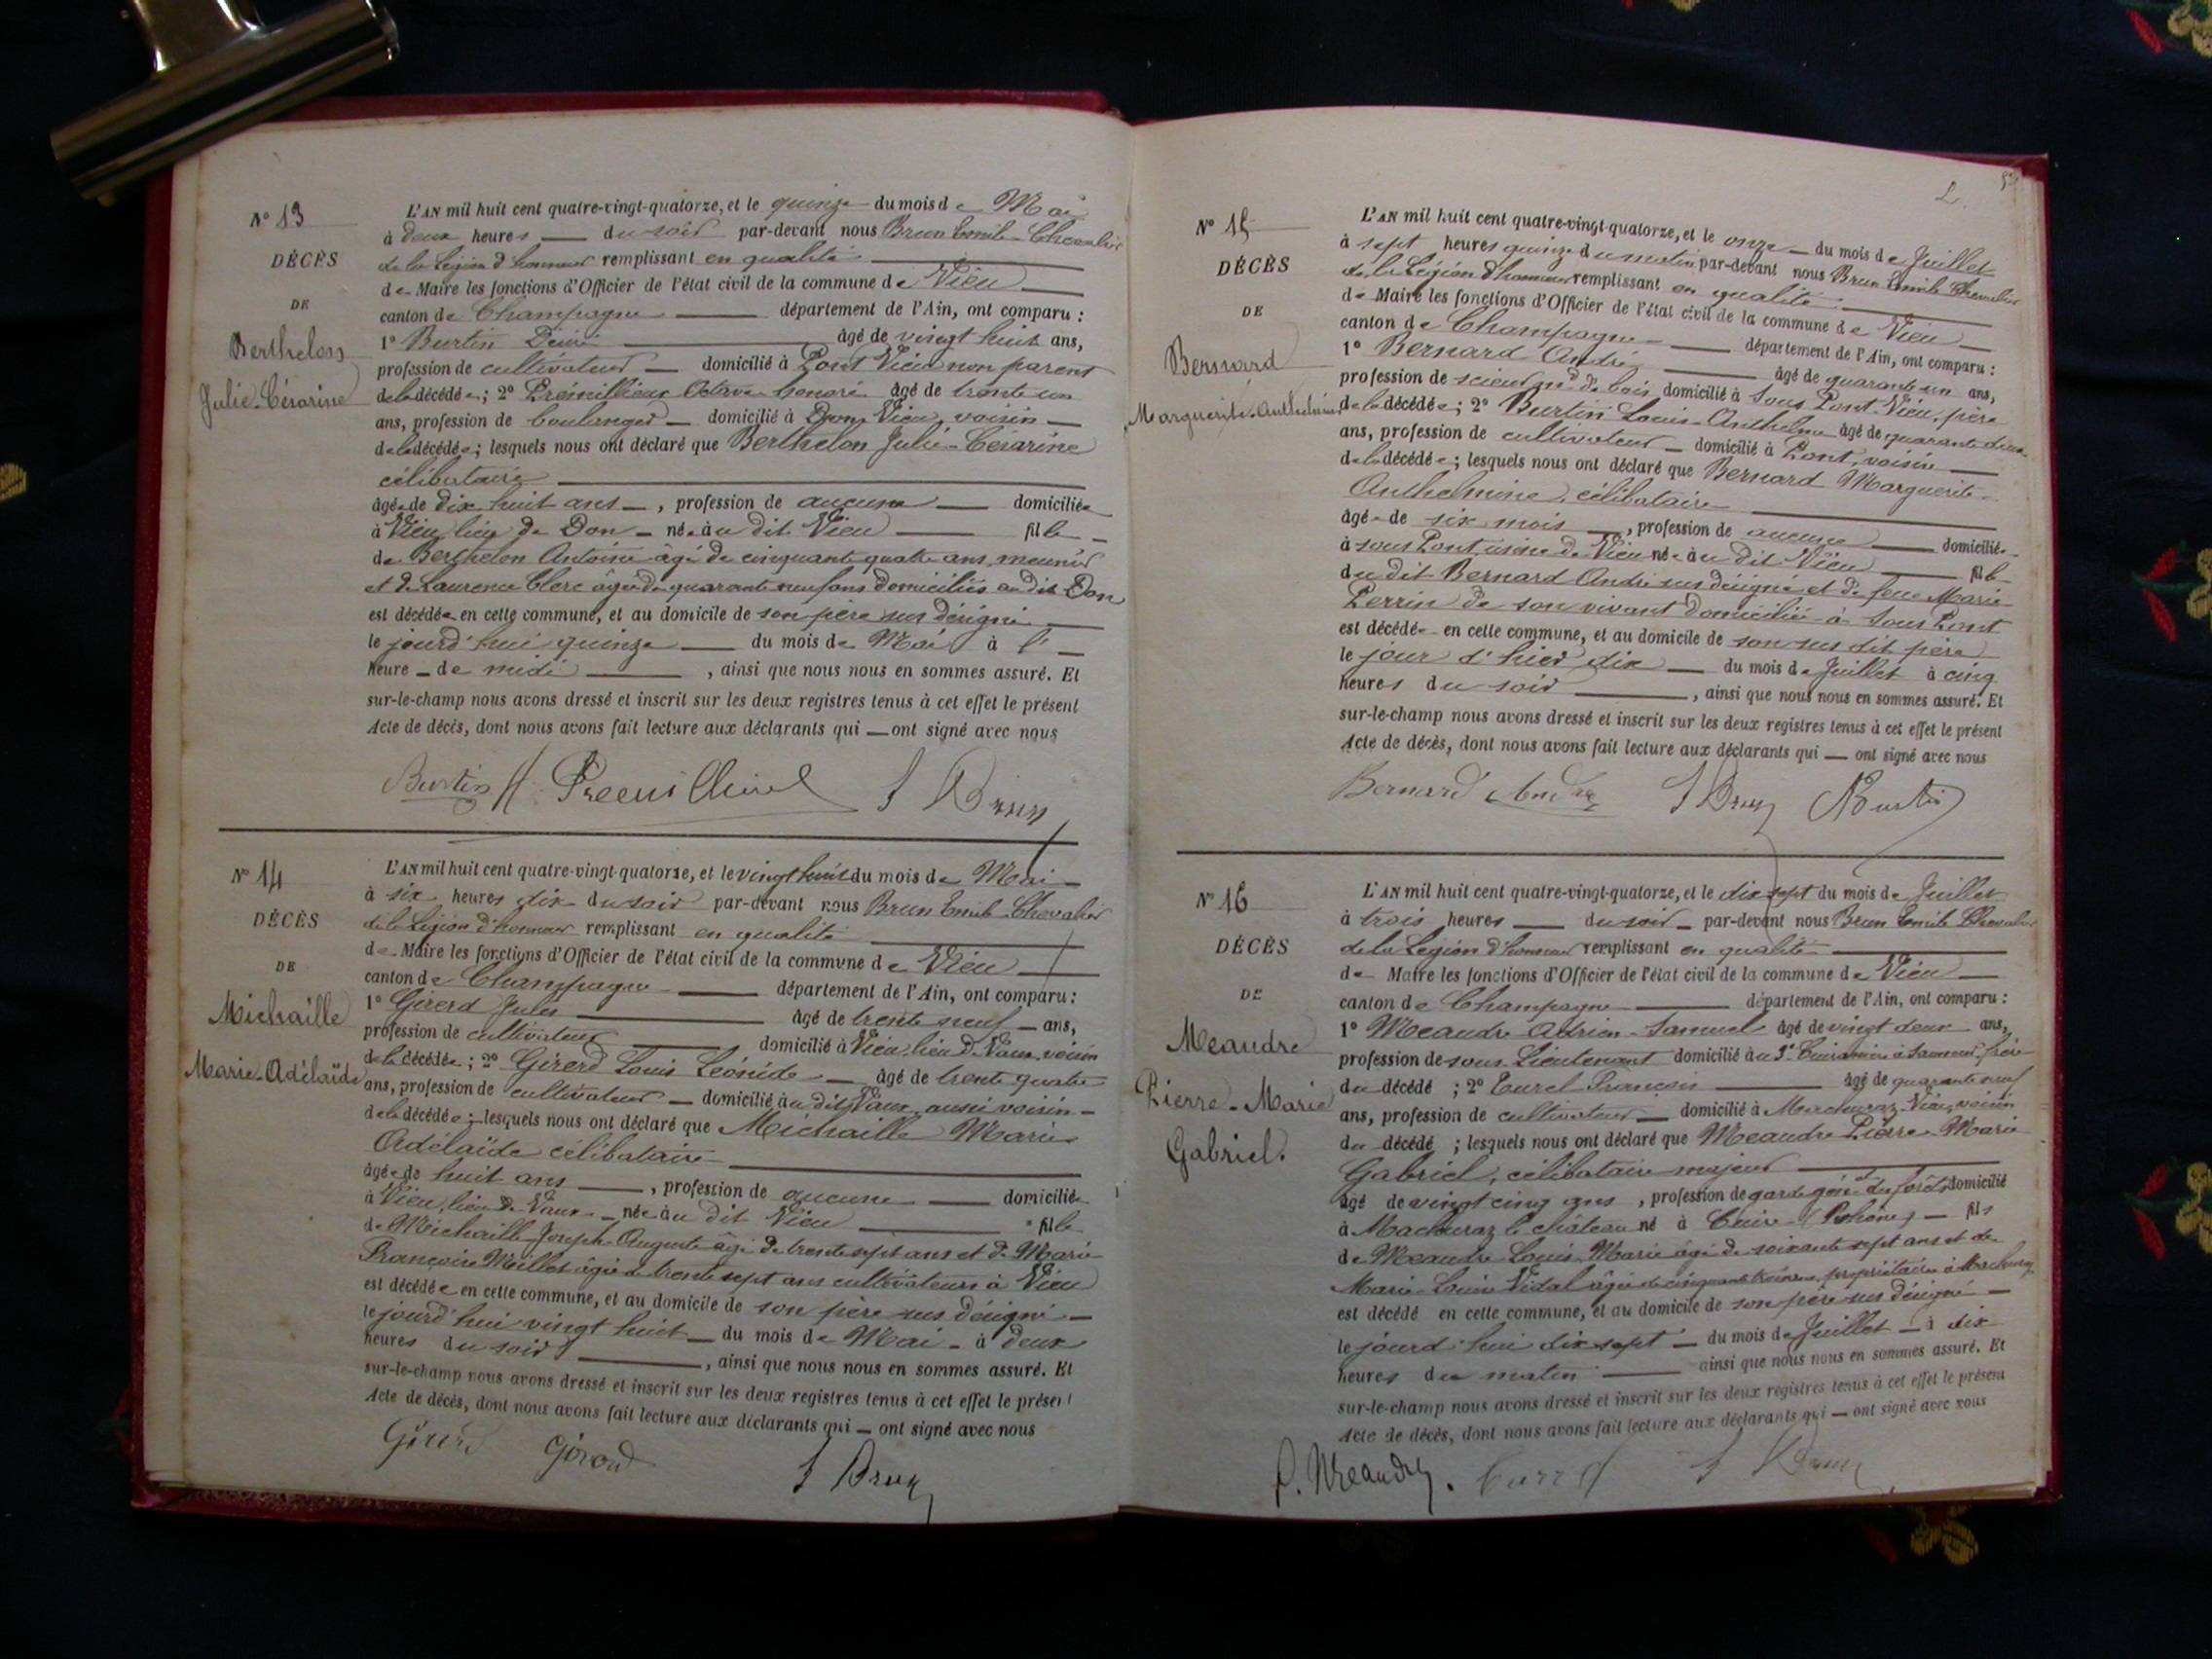 N° 13
DÉCÈS
DE
Berthelon
Julie-Césarine
L'AN mil huit cent quatre-vingt-quatorze, et le quinze du mois de Mai
à deux heures du soir par-devant nous Brun Emile Chevalier
de la Légion d'honneur remplissant en qualité
de Maire les fonctions d'Officier de l'état civil de la commune de Vieu
canton de Champagne département de l'Ain, ont comparu :
1° Burtin Désiré âgé de vingt huit ans,
profession de cultivateur domicilié à Pont Vieu non parent
de la décédée ; 2° Prémillieux Octave honoré âgé de trente un
ans, profession de boulanger domicilié à Don, Vieu, voisin
de la décédée ; lesquels nous ont déclaré que Berthelon Julie Césarine
célibataire
âgée de dix huit ans, profession de aucune domiciliée
à Vieu, lieu de Don née au dit Vieu fille
de Berthelon Antoine âgé de cinquante quatre ans, meunier
et de Laurence Clerc âgée de quarante neuf ans domiciliés au dit Don
est décédée en cette commune, et au domicile de son père sus désigné
le jourd'hui quinze du mois de Mai à l'
heure de midi, ainsi que nous nous en sommes assuré. Et
sur-le-champ nous avons dressé et inscrit sur les deux registres tenus à cet effet le présent
Acte de décès, dont nous avons fait lecture aux déclarants qui ont signé avec nous
Burtin H. Premillieux Brun
N° 14
DÉCÈS
DE
Michaille
Marie-Adélaïde
L'AN mil huit cent quatre-vingt-quatorze, et le vingt huit du mois de Mai
à six heures dix du soir par-devant nous Brun Emile Chevalier
de la Légion d'honneur remplissant en qualité
de Maire les fonctions d'Officier de l'état civil de la commune de Vieu
canton de Champagne département de l'Ain, ont comparu :
1° Girerd Jules âgé de trente neuf ans,
profession de cultivateur domicilié à Vieu, lieu de Vaux, voisin
de la décédée ; 2° Girerd Louis Léonide âgé de trente quatre
ans, profession de cultivateur domicilié au dit Vaux, aussi voisin
de la décédée ; lesquels nous ont déclaré que Michaille Marie
Adélaïde célibataire
âgée de huit ans, profession de aucune domiciliée
à Vieu, lieu de Vaux née au dit Vieu fille
de Michaille Joseph Auguste âgé de trente sept ans et de Marie
Françoise Millet âgée de trente sept ans cultivateurs à Vieu
est décédée en cette commune, et au domicile de son père sus désigné
le jourd'hui vingt huit du mois de Mai à deux
heures du soir, ainsi que nous nous en sommes assuré. Et
sur-le-champ nous avons dressé et inscrit sur les deux registres tenus à cet effet le présent
Acte de décès, dont nous avons fait lecture aux déclarants qui ont signé avec nous
Girerd Girerd Brun
N° 15
DÉCÈS
DE
Bernard
Marguerite-Anthelmine
L'AN mil huit cent quatre-vingt-quatorze, et le onze du mois de Juillet
à sept heures quinze du matin par-devant nous Brun Emile Chevalier
de la Légion d'honneur remplissant en qualité
de Maire les fonctions d'Officier de l'état civil de la commune de Vieu
canton de Champagne département de l'Ain, ont comparu :
1° Bernard André âgé de quarante un ans,
profession de scieur md de bois domicilié à Sous Pont-Vieu, père
de la décédée ; 2° Burtin Louis-Anthelme âgé de quarante deux
ans, profession de cultivateur domicilié à Pont, voisin
de la décédée ; lesquels nous ont déclaré que Bernard Marguerite
Anthelmine, célibataire
âgée de six mois, profession de aucune domiciliée
à sous Pont, usine de Vieu née au dit Vieu fille
du dit Bernard André sus désigné et de feue Marie
Perrin de son vivant domiciliée à Sous Pont
est décédée en cette commune, et au domicile de son sus dit père
le jour d'hier dix du mois de Juillet à cinq
heures du soir, ainsi que nous nous en sommes assuré. Et
sur-le-champ nous avons dressé et inscrit sur les deux registres tenus à cet effet le présent
Acte de décès, dont nous avons fait lecture aux déclarants qui ont signé avec nous
Bernard André Brun Burtin
N° 16
DÉCÈS
DE
Meandre
Pierre-Marie
Gabriel.
L'AN mil huit cent quatre-vingt-quatorze, et le dix sept du mois de Juillet
à trois heures du soir par-devant nous Brun Emile Chevalier
de la Légion d'honneur remplissant en qualité
de Maire les fonctions d'Officier de l'état civil de la commune de Vieu
canton de Champagne département de l'Ain, ont comparu :
1° Meandre Adrien-Samuel âgé de vingt deux ans,
profession de sous-Lieutenant domicilié au Cuirassiers à Saumur, frère
du décédé ; 2° Turel François âgé de quarante neuf
ans, profession de cultivateur domicilié à Machuraz-Vieu, voisin
du décédé ; lesquels nous ont déclaré que Meandre Pierre Marie
Gabriel, célibataire majeur
âgé de vingt cinq ans, profession de garde génal des forêts domicilié
à Machuraz le château né à Cuire (Rhône) fils
de Meandre Louis Marie âgé de soixante sept ans et de
Marie Louise Vidal âgée de cinquante ans, propriétaires à Machuraz
est décédé en cette commune, et au domicile de son père sus désigné
le jourd'hui dix sept du mois de Juillet à dix
heures du matin ainsi que nous nous en sommes assuré. Et
sur-le-champ nous avons dressé et inscrit sur les deux registres tenus à cet effet le présent
Acte de décès, dont nous avons fait lecture aux déclarants qui ont signé avec nous
Meandre. Turel Brun